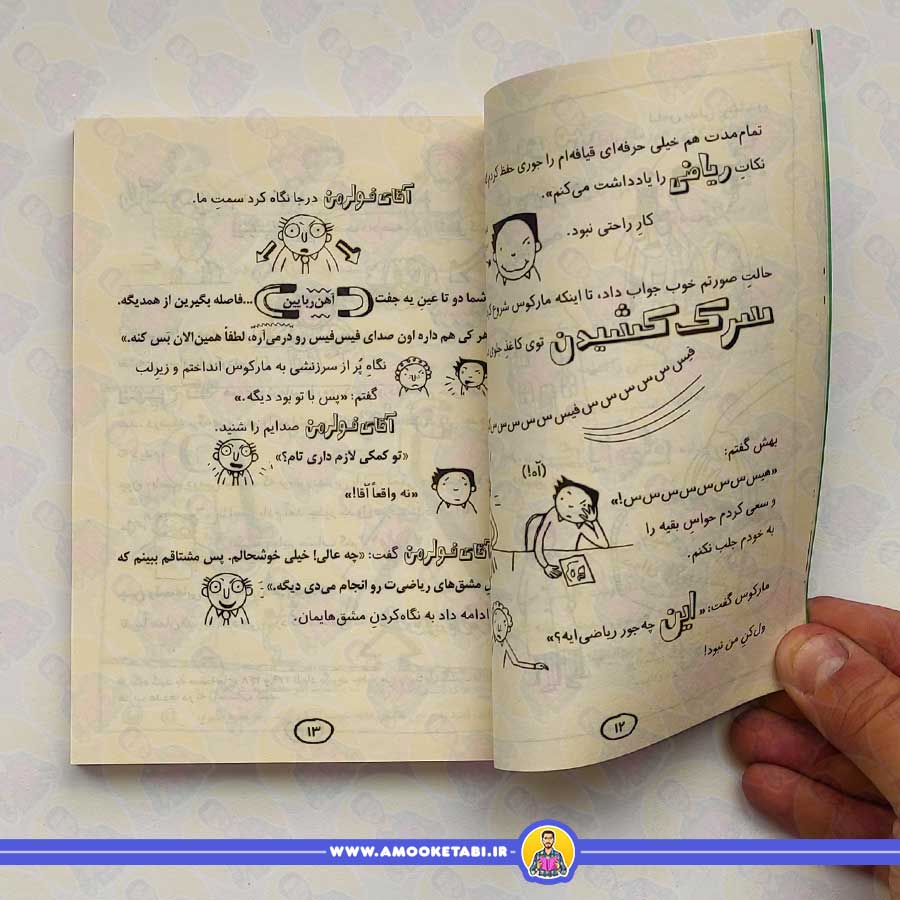 تمام‌مدت هم خیلی حرفه‌ای قیافه‌ام را جوری حفظ کردم
نکاتِ ریاضی را یادداشت می‌کنم».
کارِ راحتی نبود.
حالتِ صورتم خوب جواب داد، تا اینکه مارکوس شروع
سرک کشیدن توی کاغذِ
فیس س س س س س فیس س س س س س س
بهش گفتم:
«هیس س س س س س س س س!»
و سعی کردم حواسِ بقیه را
به خودم جلب نکنم.
(آه!)
مارکوس گفت: «این چه‌جور ریاضی‌ایه؟»
ول‌کنِ من نبود!
۱۲
آقای فولرمن درجا نگاه کرد سمتِ ما.
شما دو تا عینِ یه جفت آهن‌ربایین ...فاصله بگیرین از همدیگه.
هر کی هم داره اون صدای فیس‌فیس رو درمی‌آره، لطفاً همین‌الان بَس کنه.»
نگاهِ پُر از سرزنشی به مارکوس انداختم و زیرِلب
گفتم: «پس با تو بود دیگه.»
آقای فولرمن صدایم را شنید.
«تو کمکی لازم داری تام؟»
«نه واقعاً آقا!»
آقای فولرمن گفت: «چه عالی! خیلی خوشحالم. پس مشتاقم ببینم که
مشق‌های ریاضی‌ت رو انجام می‌دی دیگه.»
ادامه داد به نگاه‌کردنِ مشق‌هایمان.
۱۳
WWW.AMOOKETABI.IR